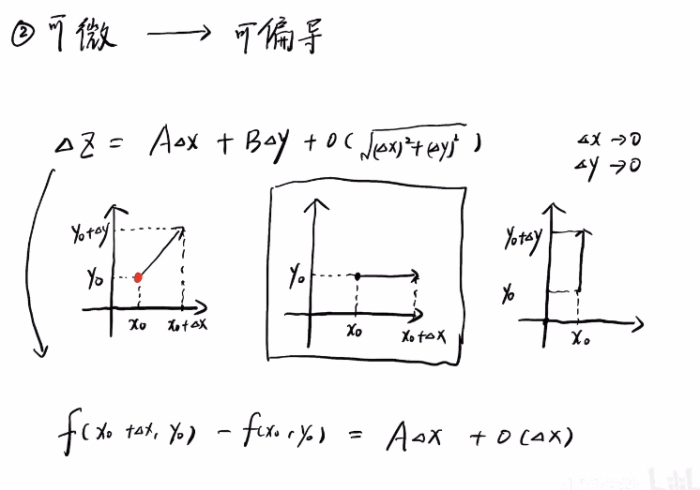 ② 可微 ⟶ 可偏导
ΔZ = AΔx + BΔy + o(√(Δx)²+(Δy)²)
Δx→0
Δy→0
y₀+Δy
y₀
x₀ x₀+Δx
y₀
x₀ x₀+Δx
y₀+Δy
y₀
x₀
f(x₀+Δx, y₀) - f(x₀, y₀) = AΔx + o(Δx)